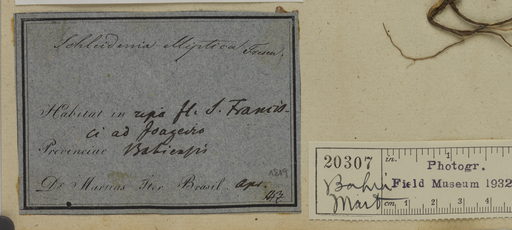 Schleidenia elliptica Fresen.
Habitat in ripa fl. S. Francis-
ci ad Joazeiro
Provinciae Bahiensis
1819
Dr. Martius Iter Brasil. Apr.
20307
in.
Photogr.
Field Museum 1932
Bahi
Mart
cm
1
2
3
4
5